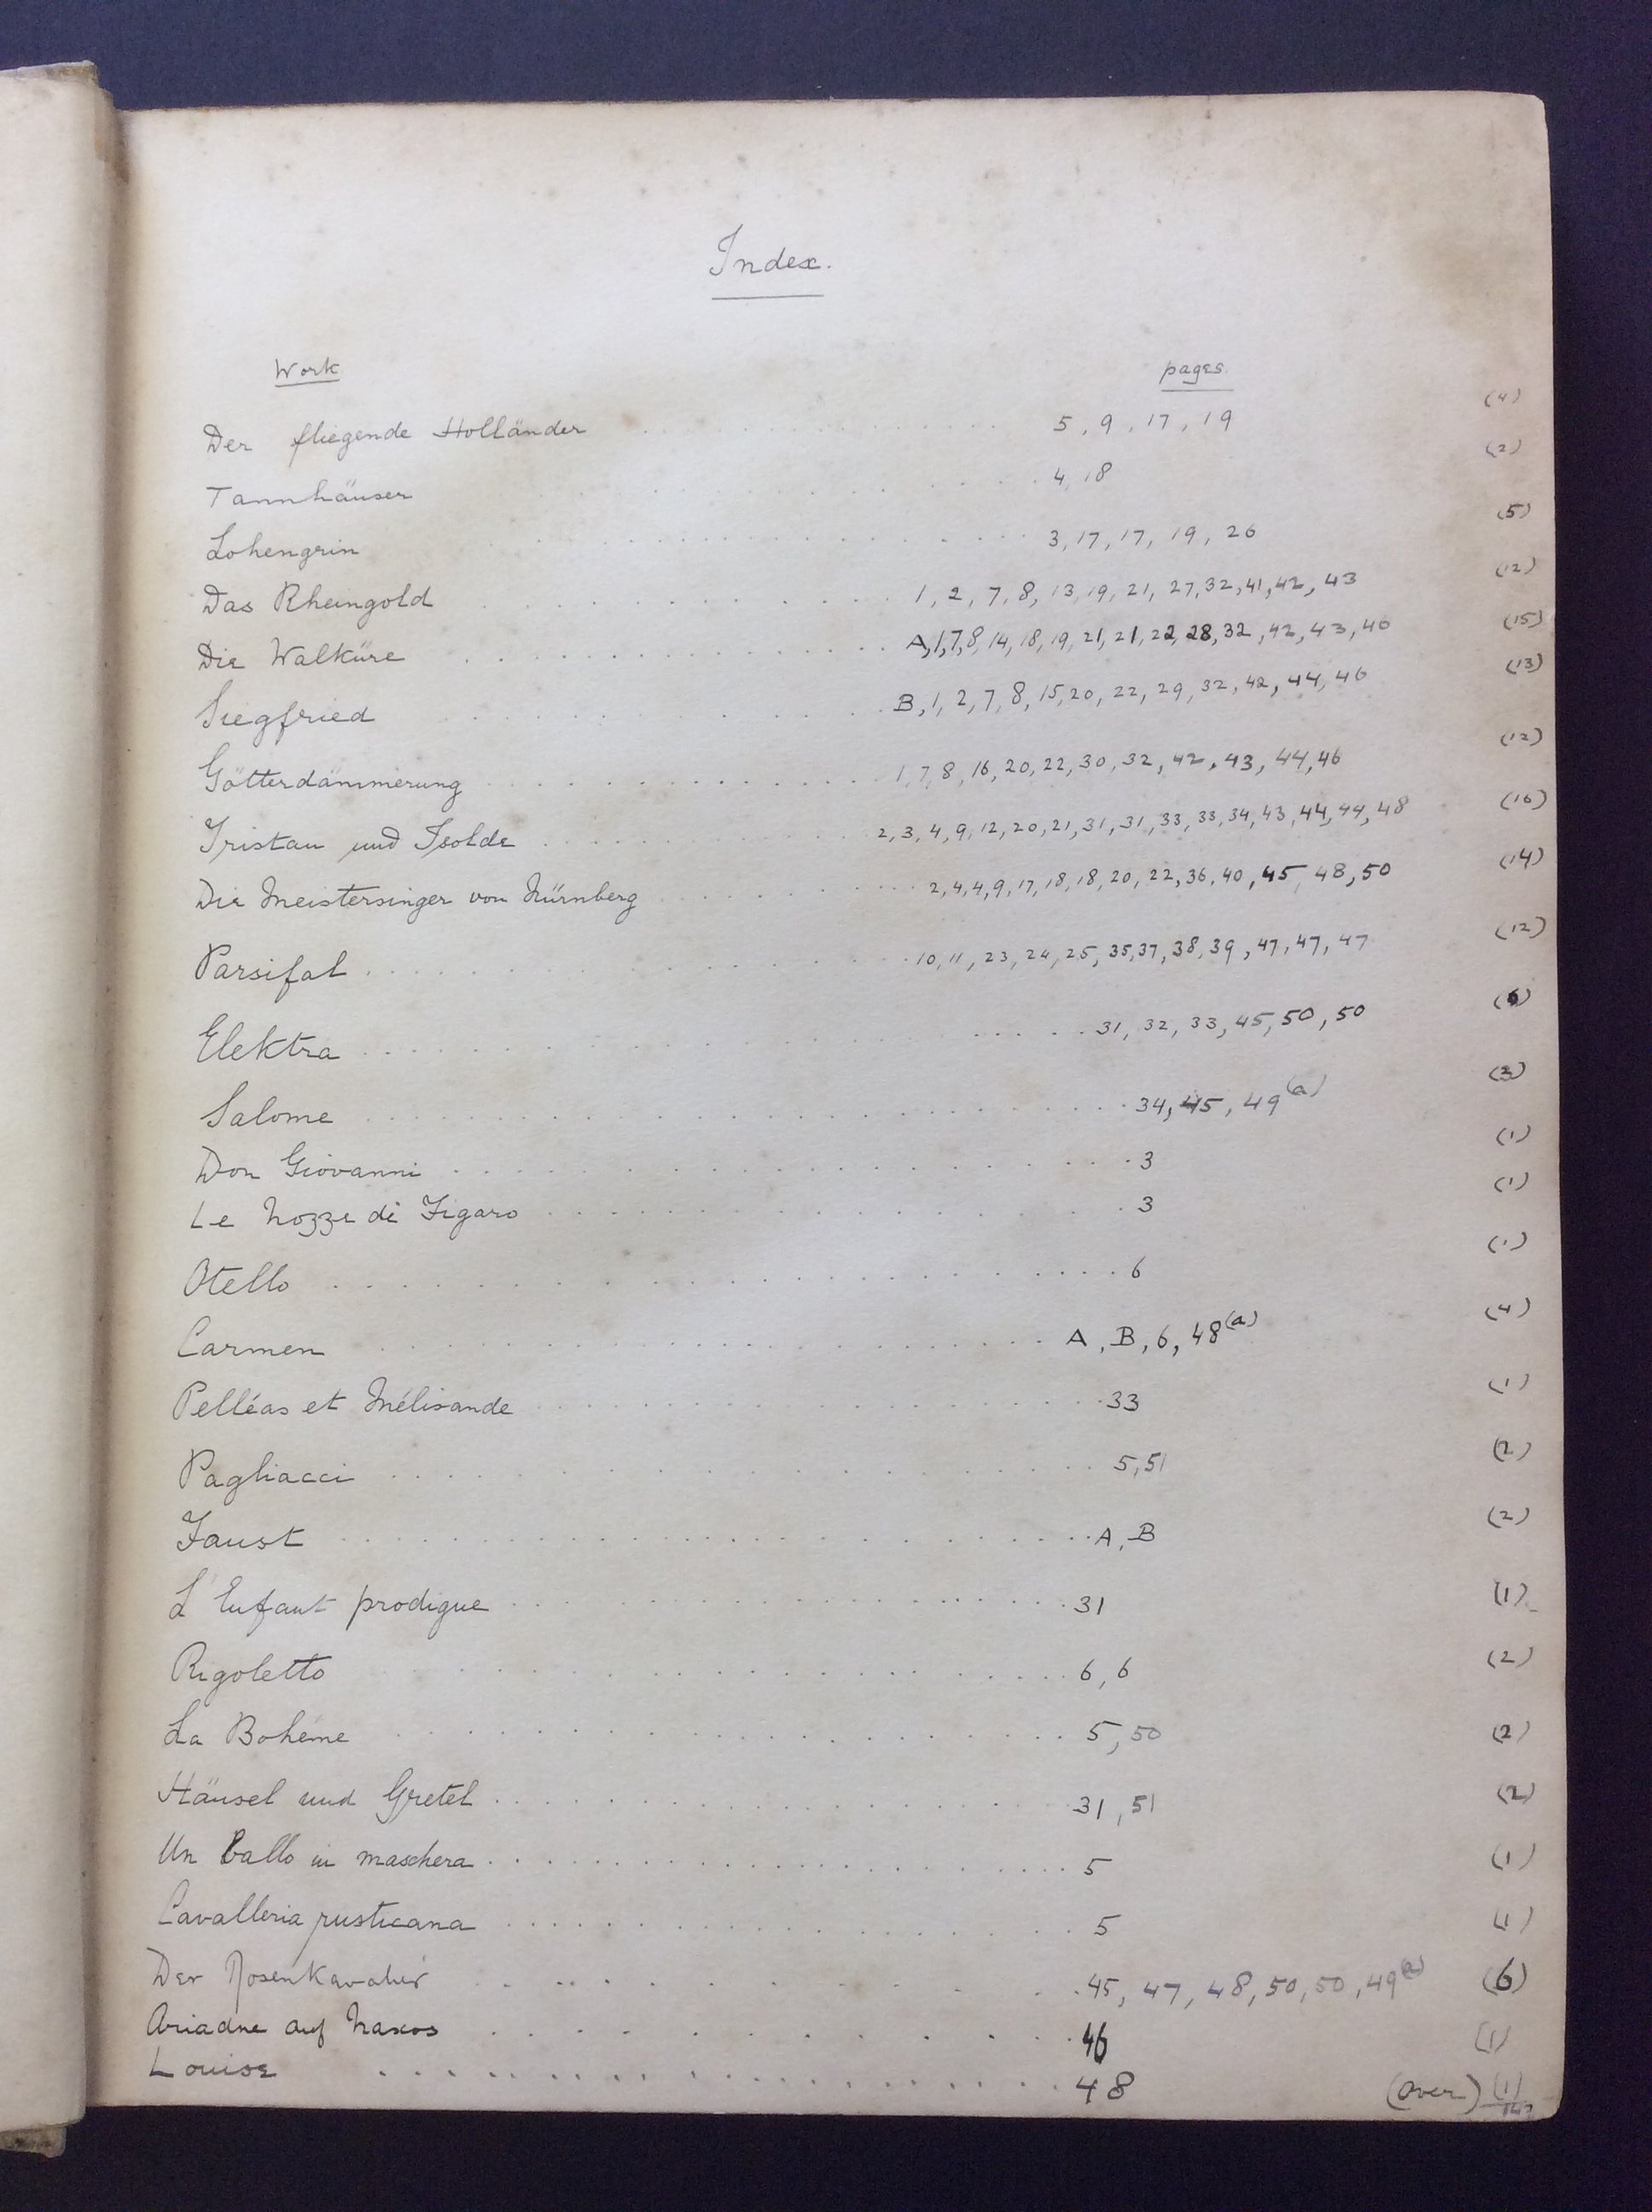 Index.
Work pages.
Der fliegende Holländer 5, 9, 17, 19 (4)
Tannhäuser 4, 18 (2)
Lohengrin 3, 17, 17, 19, 26 (5)
Das Rheingold 1, 2, 7, 8, 13, 19, 21, 27, 32, 41, 42, 43 (12)
Die Walküre A, 1, 7, 8, 14, 18, 19, 21, 21, 22, 28, 32, 42, 43, 46 (15)
Siegfried B, 1, 2, 7, 8, 15, 20, 22, 29, 32, 42, 44, 46 (13)
Götterdämmerung 1, 7, 8, 16, 20, 22, 30, 32, 42, 43, 44, 46 (12)
Tristan und Isolde 2, 3, 4, 9, 12, 20, 21, 31, 31, 33, 33, 34, 43, 44, 44, 48 (16)
Die Meistersinger von Nürnberg 2, 4, 4, 9, 17, 18, 18, 20, 22, 36, 40, 45, 48, 50 (14)
Parsifal 10, 11, 23, 24, 25, 35, 37, 38, 39, 47, 47, 47 (12)
Elektra 31, 32, 33, 45, 50, 50 (6)
Salome 34, 45, 49(a) (3)
Don Giovanni 3 (1)
Le Nozze di Figaro 3 (1)
Otello 6 (1)
Carmen A, B, 6, 48(a) (4)
Pelléas et Mélisande 33 (1)
Pagliacci 5, 51 (2)
Faust A, B (2)
L'Enfant prodigue 31 (1)
Rigoletto 6, 6 (2)
La Bohème 5, 50 (2)
Hänsel und Gretel 31, 51 (2)
Un Ballo in maschera 5 (1)
Cavalleria rusticana 5 (1)
Der Rosenkavalier 45, 47, 48, 50, 50, 49(a) (6)
Ariadne auf Naxos 46 (1)
Louise 48 (over) (1)